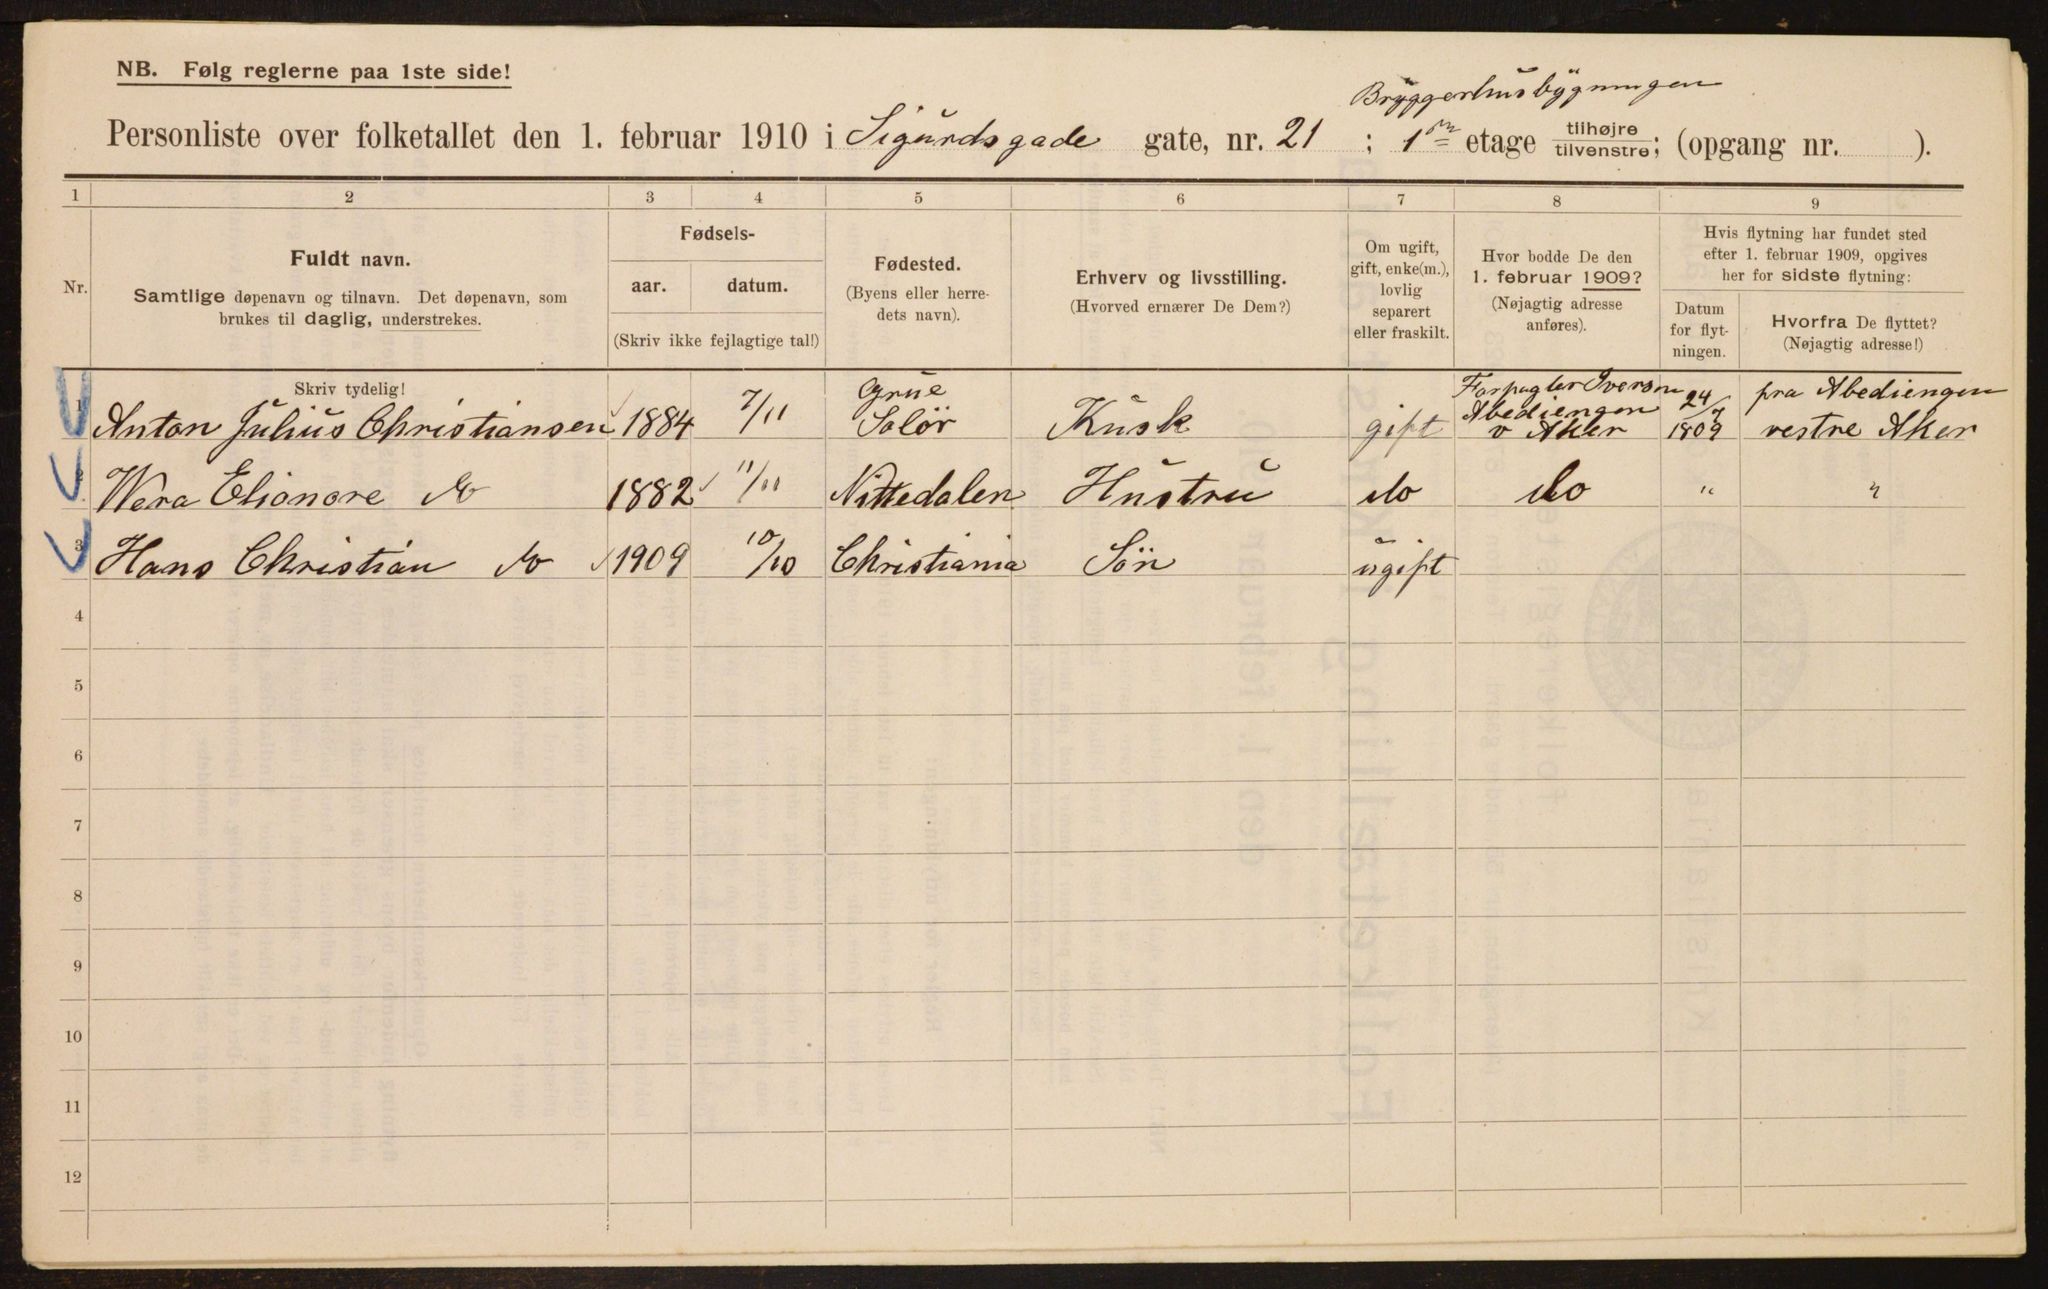 NB. Følg reglerne paa 1ste side!
Bryggerhusbygningen
Personliste over folketallet den 1. februar 1910 i Sigurdsgade gate, nr. 21 ; 1ste etage tilhøjre tilvenstre; (opgang nr. ).
1 2 3 4 5 6 7 8 9
Nr.
Fuldt navn.
Samtlige døpenavn og tilnavn. Det døpenavn, som
brukes til daglig, understrekes.
Fødsels-
aar. datum.
(Skriv ikke fejlagtige tal!)
Fødested.
(Byens eller herre-
dets navn).
Erhverv og livsstilling.
(Hvorved ernærer De Dem?)
Om ugift,
gift, enke(m.),
lovlig
separert
eller fraskilt.
Hvor bodde De den
1. februar 1909?
(Nøjagtig adresse
anføres).
Hvis flytning har fundet sted
efter 1. februar 1909, opgives
her for sidste flytning:
Datum
for flyt-
ningen.
Hvorfra De flyttet?
(Nøjagtig adresse!)
Skriv tydelig!
1 Anton Julius Christiansen 1884 7/11 Grue Solör Kusk gift Forpagter Iversen Abediengen v Aker 24/7 1809 fra Abediengen vestre Aker
2 Wera Elionore do 1882 11/11 Nittedalen Hustru do do " "
3 Hans Christian do 1909 10/10 Christiania Sön ugift
4
5
6
7
8
9
10
11
12